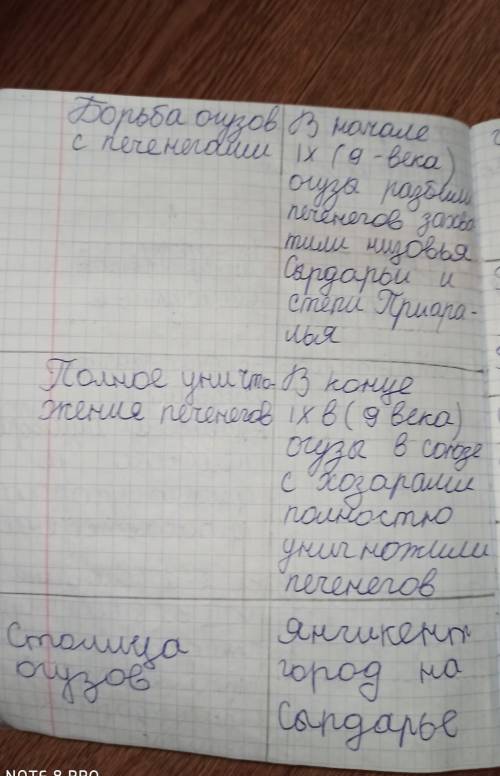 Борьба огузов
с печенегами
В начале
IX (9-века)
огуза разбили
печенегов захва
тили низовья
Сырдарьи и
степи Приара-
лья
Полное уничто-
жения печенегов
В конце
IX в (9 века)
огуза в союзе
с хозарами
полностю
уничножили
печенегов
Столица
огузов
Янгикент
город на
Сырдарье
NOTE 8 PRO